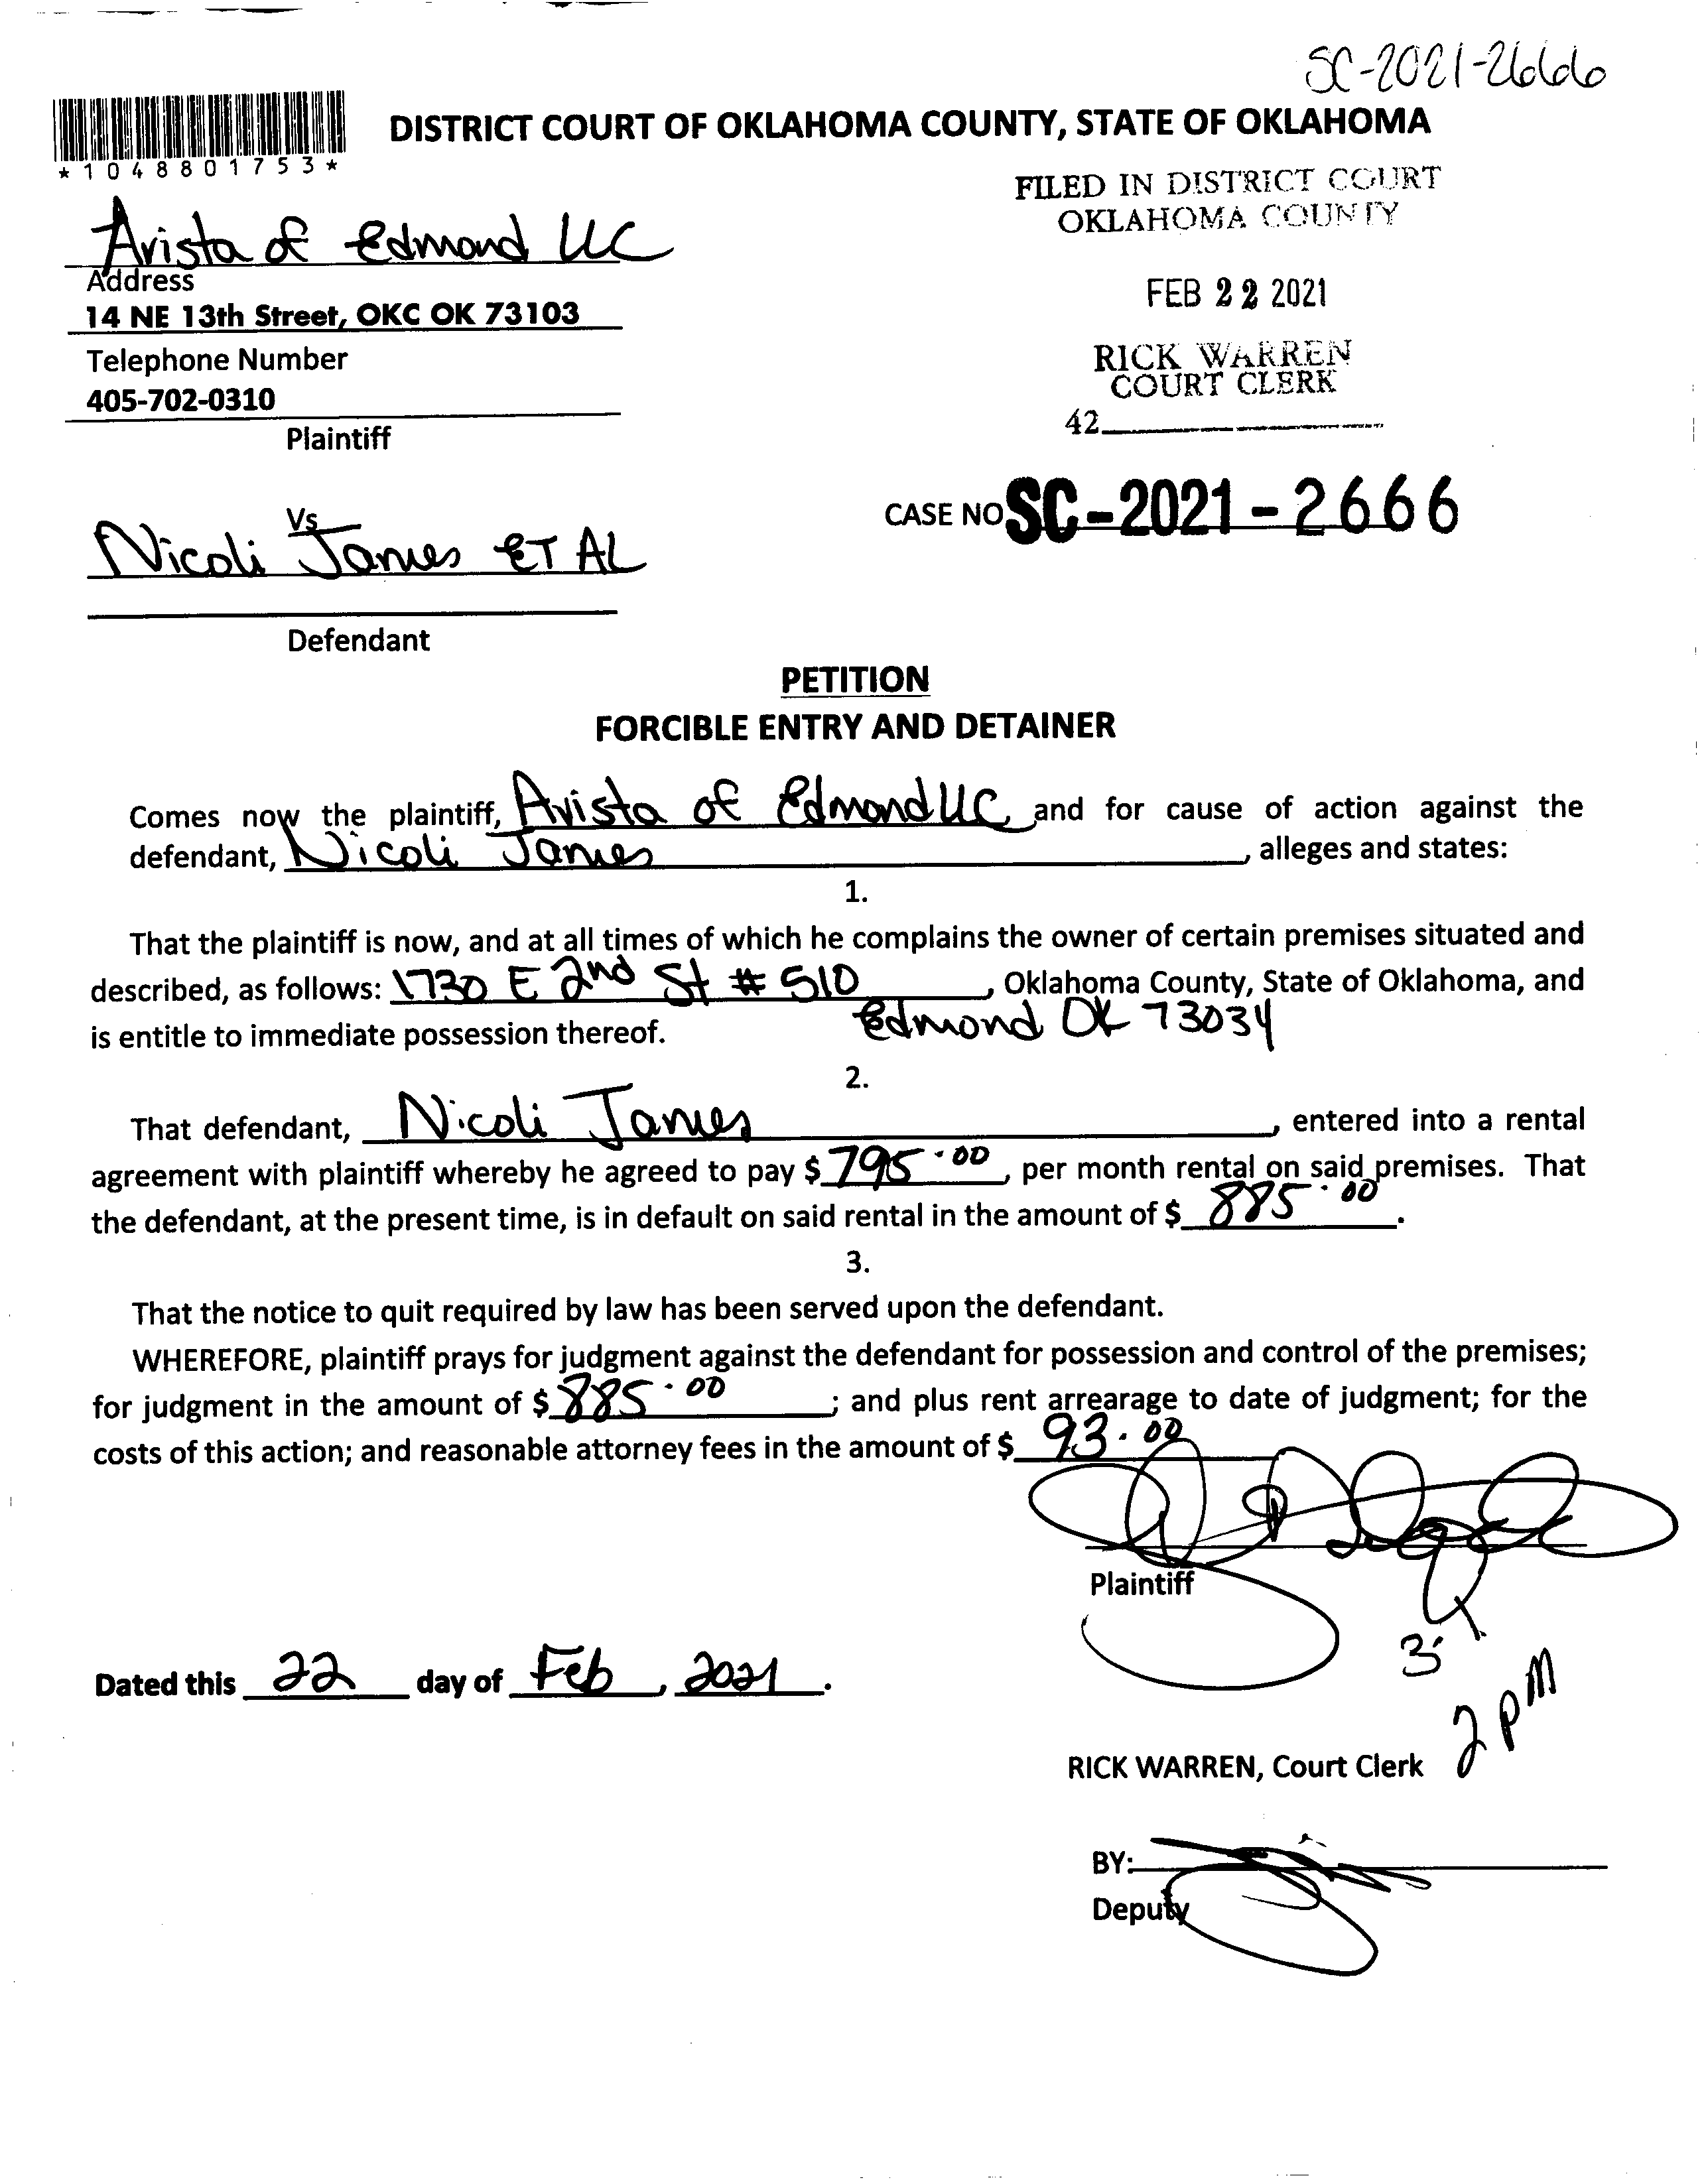 SC-2021-2666
*1048801753*
DISTRICT COURT OF OKLAHOMA COUNTY, STATE OF OKLAHOMA
FILED IN DISTRICT COURT
OKLAHOMA COUNTY
FEB 22 2021
RICK WARREN
COURT CLERK
42
Avista of Edmond LLC
Address
14 NE 13th Street, OKC OK 73103
Telephone Number
405-702-0310
Plaintiff
Vs
CASE NO SC-2021-2666
Nicoli James ET AL
Defendant
PETITION
FORCIBLE ENTRY AND DETAINER
Comes now the plaintiff, Avista of Edmond LLC and for cause of action against the
defendant, Nicoli James, alleges and states:
1.
That the plaintiff is now, and at all times of which he complains the owner of certain premises situated and
described, as follows: 1730 E 2nd St # 510, Oklahoma County, State of Oklahoma, and
is entitle to immediate possession thereof. Edmond OK 73034
2.
That defendant, Nicoli James, entered into a rental
agreement with plaintiff whereby he agreed to pay $ 795.00, per month rental on said premises. That
the defendant, at the present time, is in default on said rental in the amount of $ 885.00.
3.
That the notice to quit required by law has been served upon the defendant.
WHEREFORE, plaintiff prays for judgment against the defendant for possession and control of the premises;
for judgment in the amount of $ 885.00; and plus rent arrearage to date of judgment; for the
costs of this action; and reasonable attorney fees in the amount of $ 93.00
Plaintiff
Dated this 22 day of Feb, 2021.
2 pm
RICK WARREN, Court Clerk
BY:
Deputy